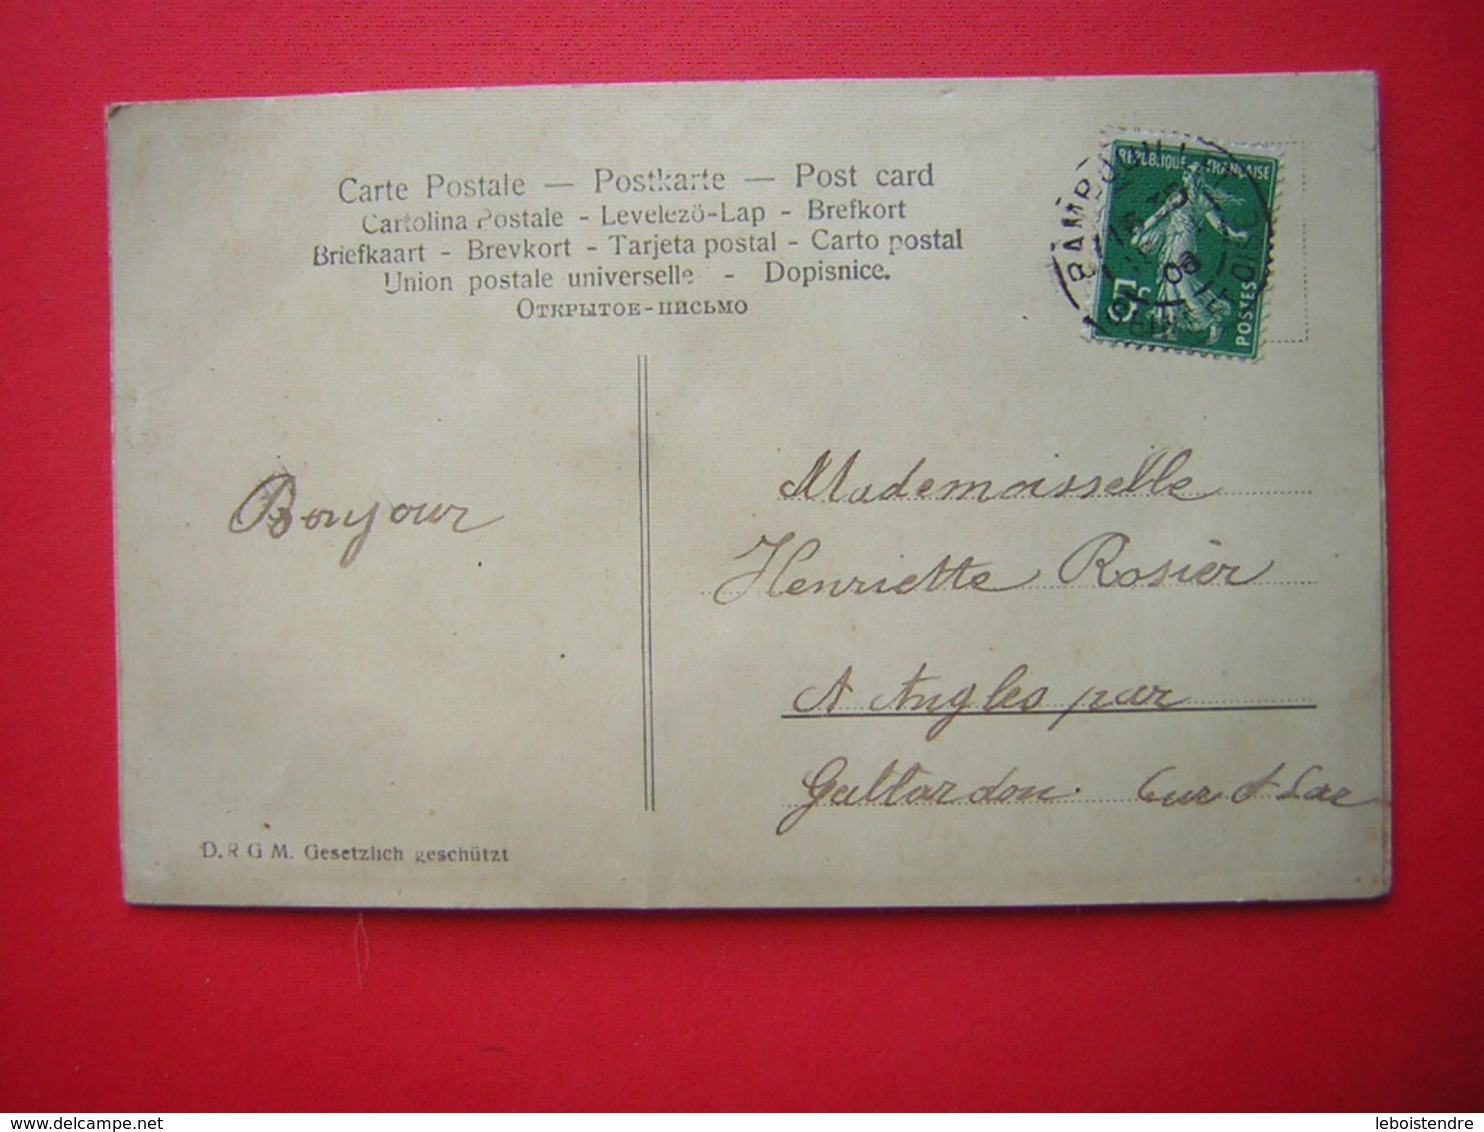 Carte Postale — Postkarte — Post card
Cartolina Postale - Levelező-Lap - Brefkort
Briefkaart - Brevkort - Tarjeta postal - Carto postal
Union postale universelle - Dopisnice.
Открытое-письмо
REPUBLIQUE FRANÇAISE
5c
POSTES
08
Bonjour
Mademoisselle
Henriette Rosier
A Angles par
Gallardon. Eur & Loir
D.R.G.M. Gesetzlich geschützt
leboistendre